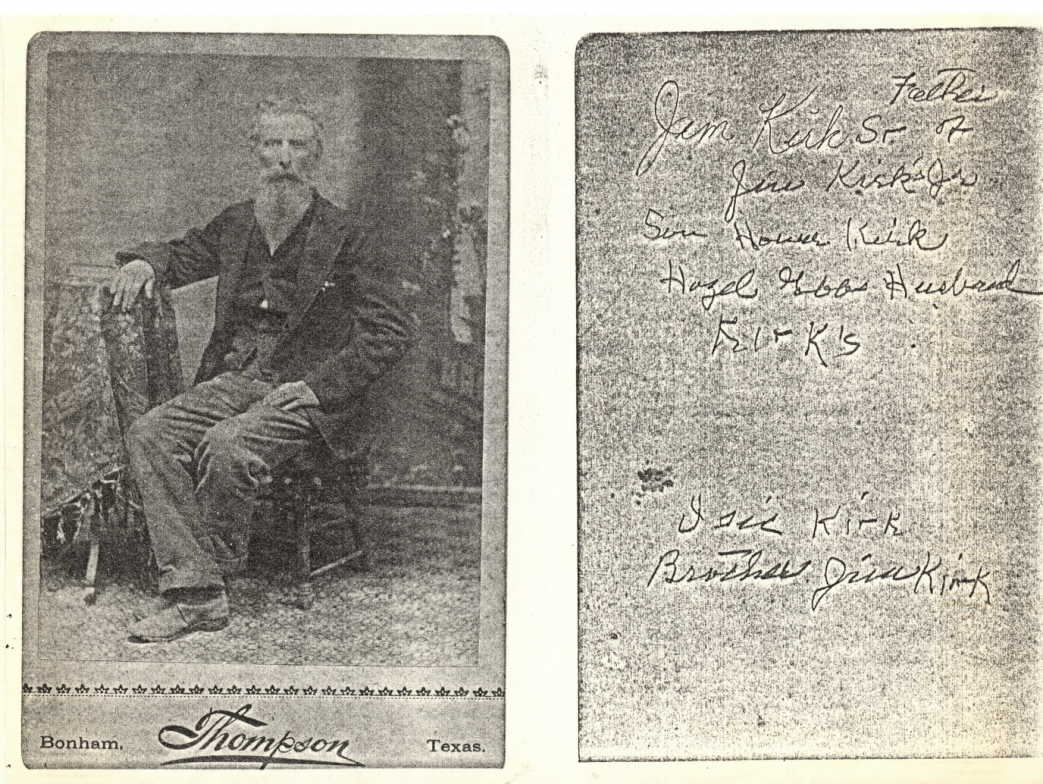 Bonham,
Thompson
Texas.
Father
Jim Kirk Sr of
Jim Kirk Jr
Son Kirk
Hazel Husband
Kirk's
Kirk
Brother Jim Kirk